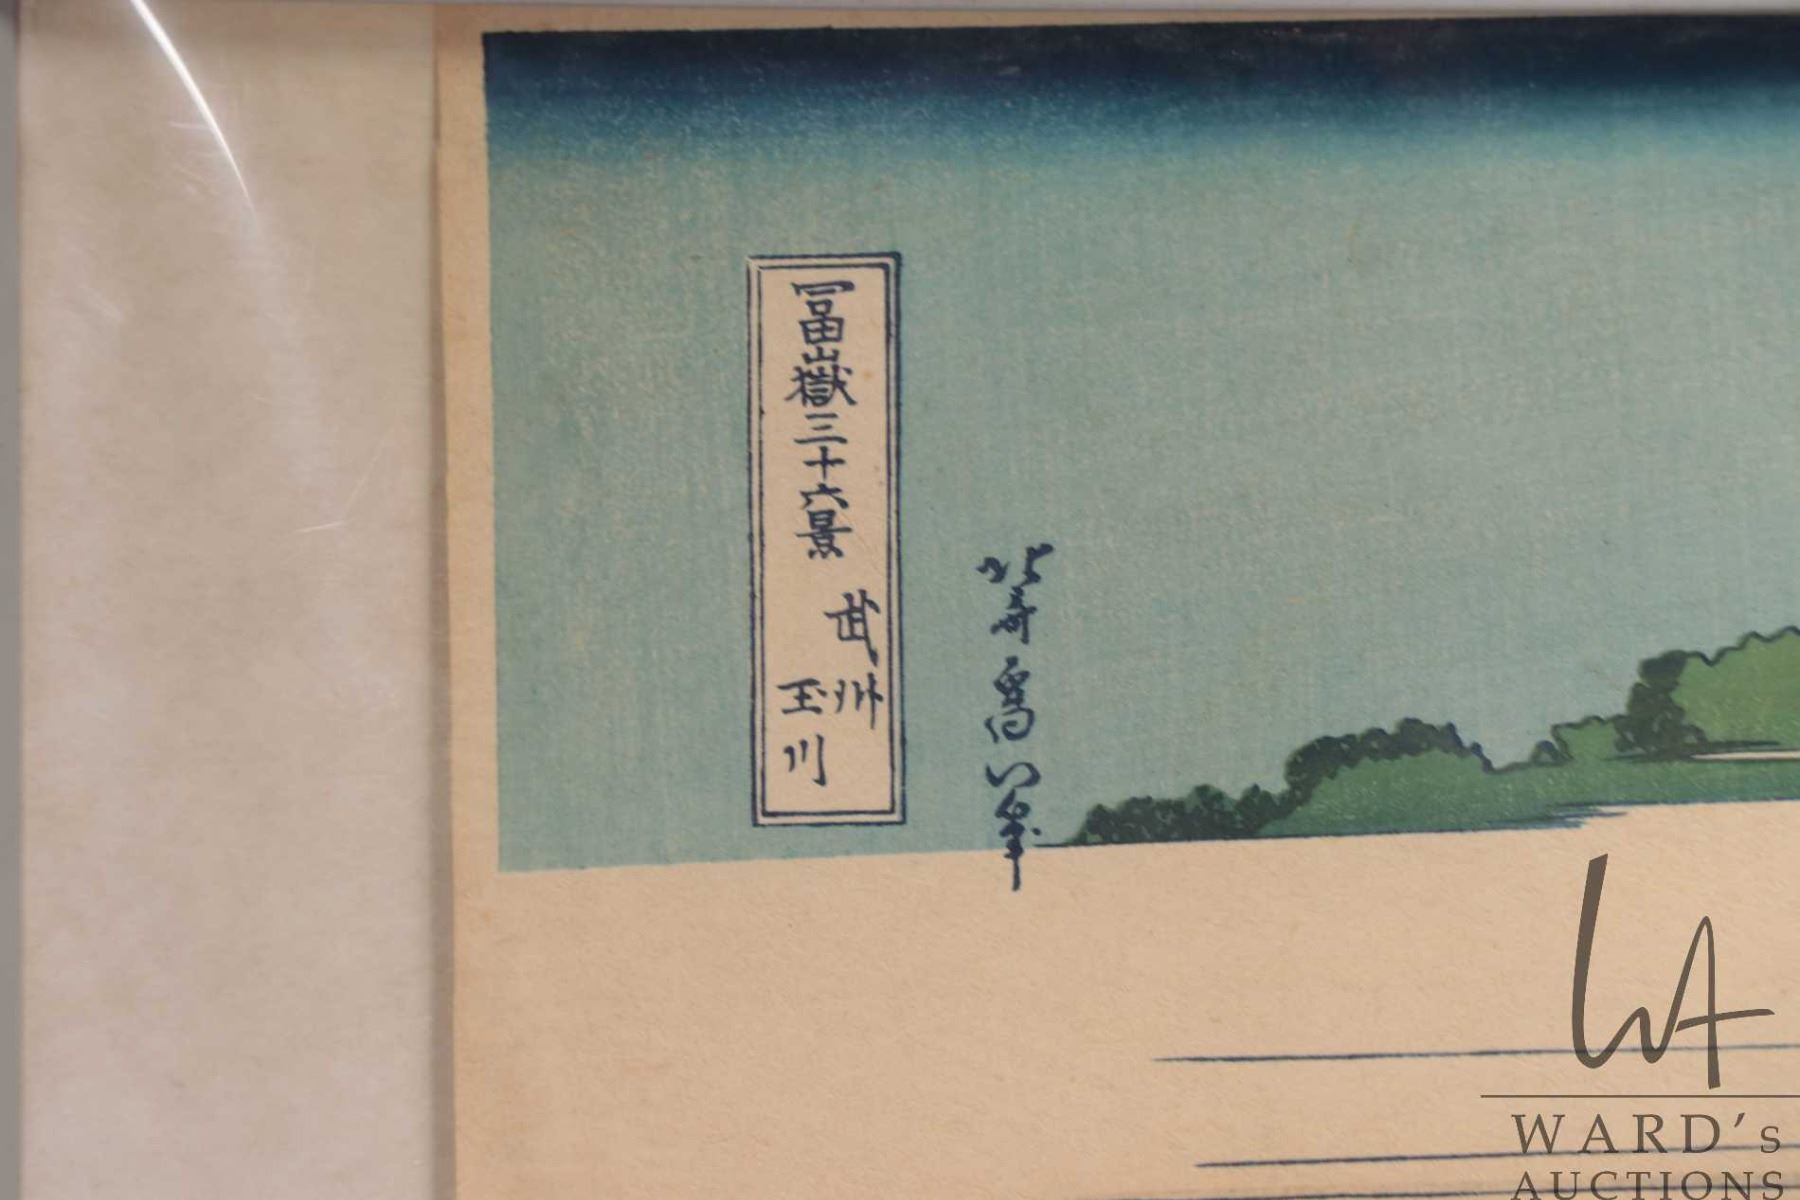 冨嶽三十六景
武州
玉川
北斎為一筆
WARD's
AUCTIONS